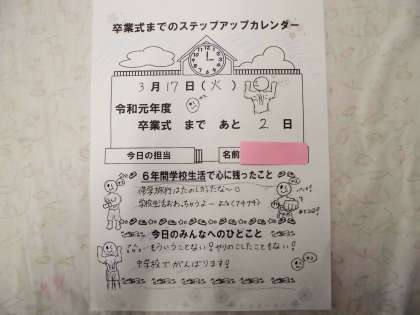 卒業式までのステップアップカレンダー
3月17日(火)
令和元年度
卒業式 まで あと 2 日
今日の担当
名前
6年間学校生活で心に残ったこと
修学旅行はたのしかったな〜
学校生活おわっちゃうよー
今日のみんなへのひとこと
もういうことない!やりのこしたこともない!
中学校でがんばります!